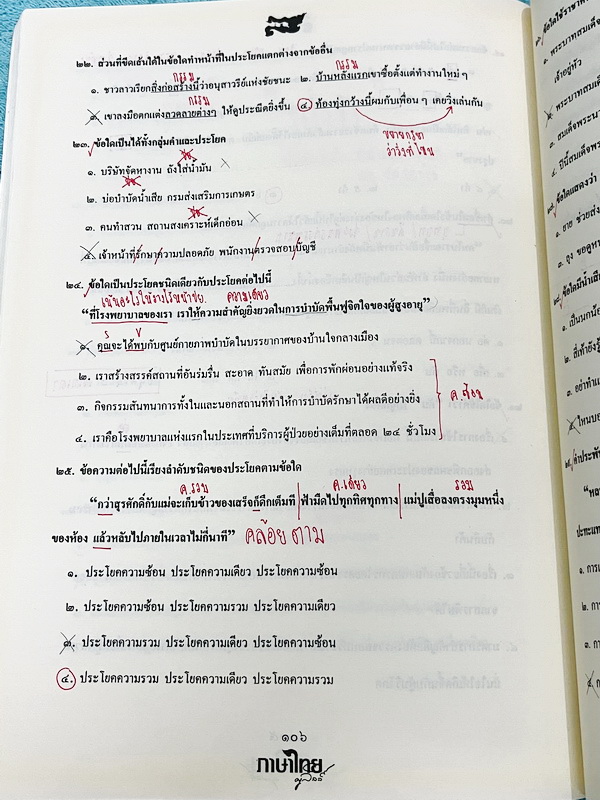 ๒๒. ส่วนที่ขีดเส้นใต้ในข้อใดทำหน้าที่ในประโยคแตกต่างจากข้ออื่น
กรรม กรรม
๑. ชาวลาวเรียกสิ่งก่อสร้างนี้ว่าอนุสาวรีย์แห่งชัยชนะ ๒. บ้านหลังแรกเขาซื้อตั้งแต่ทำงานใหม่ ๆ
กรรม
๓. เขาลงมือตกแต่งลวดลายต่างๆ ให้ดูประณีตยิ่งขึ้น ๔. ท้องทุ่งกว้างนี้ผมกับเพื่อน ๆ เคยวิ่งเล่นกัน
ขยายกริยา
ว่าวิ่งที่ไหน
๒๓. ข้อใดเป็นได้ทั้งกลุ่มคำและประโยค
๑. บริษัทจัดหางาน ถังใส่น้ำมัน
๒. บ่อบำบัดน้ำเสีย กรมส่งเสริมการเกษตร
๓. คนทำสวน สถานสงเคราะห์เด็กอ่อน
๔. เจ้าหน้าที่รักษาความปลอดภัย พนักงานตรวจสอบบัญชี
๒๔. ข้อใดเป็นประโยคชนิดเดียวกับประโยคต่อไปนี้
ความเดียว
“ที่โรงพยาบาลของเรา เราให้ความสำคัญยิ่งยวดในการบำบัดฟื้นฟูจิตใจของผู้สูงอายุ”
๑. คุณจะได้พบกับศูนย์กายภาพบำบัดในบรรยากาศของบ้านใจกลางเมือง
๒. เราสร้างสรรค์สถานที่อันร่มรื่น สะอาด ทันสมัย เพื่อการพักผ่อนอย่างแท้จริง
๓. กิจกรรมสันทนาการทั้งในและนอกสถานที่ทำให้การบำบัดรักษาได้ผลดีอย่างยิ่ง
ค.ซ้อน
๔. เราคือโรงพยาบาลแห่งแรกในประเทศที่บริการผู้ป่วยอย่างเต็มที่ตลอด ๒๔ ชั่วโมง
๒๕. ข้อความต่อไปนี้เรียงลำดับชนิดของประโยคตามข้อใด
ค.รวม ค.เดียว รวม
“กว่าสุรศักดิ์กับแม่จะเก็บข้าวของเสร็จก็ดึกเต็มที ฟ้ามืดไปทุกทิศทุกทาง แม่ปูเสื่อลงตรงมุมหนึ่ง
ของห้อง แล้วหลับไปภายในเวลาไม่กี่นาที” คล้อยตาม
๑. ประโยคความซ้อน ประโยคความเดียว ประโยคความซ้อน
๒. ประโยคความซ้อน ประโยคความรวม ประโยคความเดียว
๓. ประโยคความรวม ประโยคความเดียว ประโยคความซ้อน
๔. ประโยคความรวม ประโยคความเดียว ประโยคความรวม
๑๐๖
ภาษาไทย